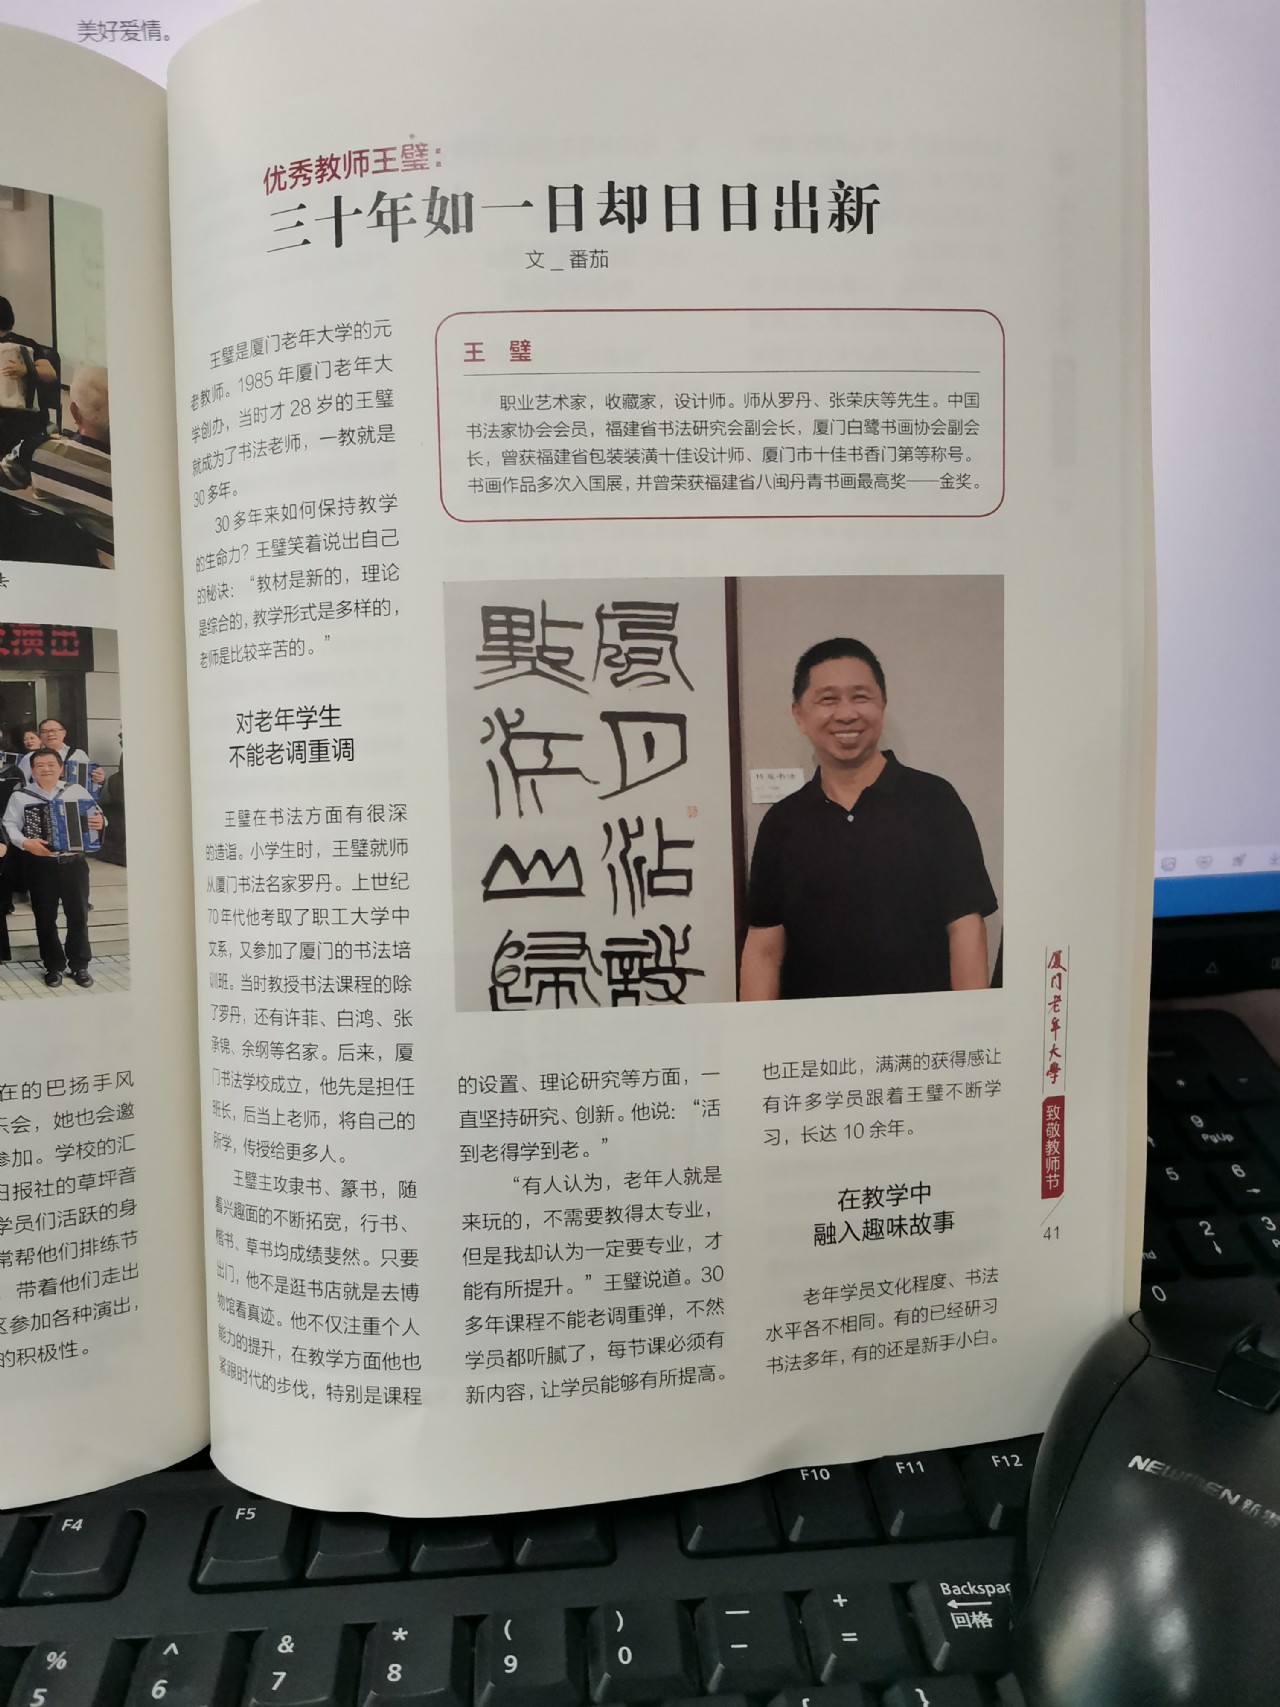 美好爱情。
优秀教师王璧：
三十年如一日却日日出新
文_番茄
王璧是厦门老年大学的元
老教师。1985年厦门老年大
学创办，当时才28岁的王璧
就成为了书法老师，一教就是
30多年。
30多年来如何保持教学
的生命力？王璧笑着说出自己
的秘诀：“教材是新的，理论
是综合的，教学形式是多样的，
老师是比较辛苦的。”
对老年学生
不能老调重调
王璧在书法方面有很深
的造诣。小学生时，王璧就师
从厦门书法名家罗丹。上世纪
70年代他考取了职工大学中
文系，又参加了厦门的书法培
训班。当时教授书法课程的除
了罗丹，还有许菲、白鸿、张
承锦、余纲等名家。后来，厦
门书法学校成立，他先是担任
班长，后当上老师，将自己的
所学，传授给更多人。
王璧主攻隶书、篆书，随
着兴趣面的不断拓宽，行书、
楷书、草书均成绩斐然。只要
出门，他不是逛书店就是去博
物馆看真迹。他不仅注重个人
能力的提升，在教学方面他也
紧跟时代的步伐，特别是课程
王 璧
职业艺术家，收藏家，设计师。师从罗丹、张荣庆等先生。中国
书法家协会会员，福建省书法研究会副会长，厦门白鹭书画协会副会
长，曾获福建省包装装潢十佳设计师、厦门市十佳书香门第等称号。
书画作品多次入国展，并曾荣获福建省八闽丹青书画最高奖——金奖。
的设置、理论研究等方面，一
直坚持研究、创新。他说：“活
到老得学到老。”
“有人认为，老年人就是
来玩的，不需要教得太专业，
但是我却认为一定要专业，才
能有所提升。”王璧说道。30
多年课程不能老调重弹，不然
学员都听腻了，每节课必须有
新内容，让学员能够有所提高。
也正是如此，满满的获得感让
有许多学员跟着王璧不断学
习，长达10余年。
在教学中
融入趣味故事
老年学员文化程度、书法
水平各不相同。有的已经研习
书法多年，有的还是新手小白。
厦门老年大学
致敬教师节
41
演出
在的巴扬手风
会，她也会邀
参加。学校的汇
日报社的草坪音
学员们活跃的身
常帮他们排练节
带着他们走出
参加各种演出，
的积极性。
F4
F5
F10
F11
F12
Backspac
回格
%
5
^
6
&
7
*
8
(
9
)
0
—
-
+
=
}
9
PgUp
5
6
2
3
0